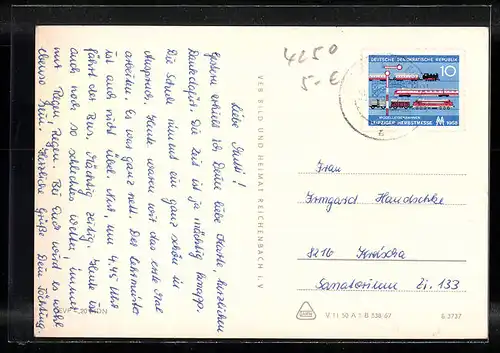 Liebe Mutti!
Gestern erhielt ich Deine liebe Karte, herzlichen
Dank dafür. Die Zeit ist ja mächtig knapp.
Die Schule nimmt ein ganz schön in
Anspruch. Heute waren wir das erste Mal
arbeiten. Es war ganz nett. Der Lehrmeister
ist auch nicht übel. Nur, um 4.45 Uhr
fährt der Bus. Mächtig zeitig. Heute ist
auch noch so schlechtes Wetter! immer
nur Regen, Regen. Bei Euch wird es wohl
ebenso sein. Herzliche Grüße Dein
VEB BILD UND HEIMAT REICHENBACH I. V.
4250
5.-€
DEUTSCHE DEMOKRATISCHE REPUBLIK
10
MODELLEISENBAHNEN
LEIPZIGER HERBSTMESSE
1968
Frau
Irmgard Handschke
8216 Kreischa
Sanatorium Zi. 133
V 11 50 A 1 B 538 67
B 3737